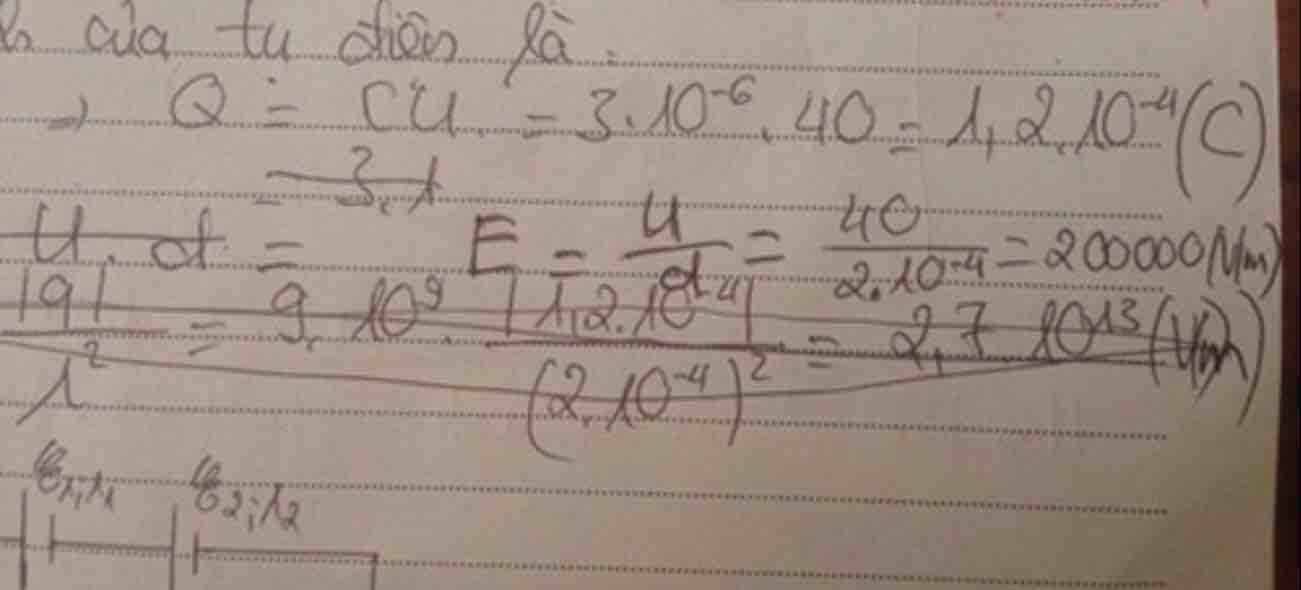 của tụ điện là:
→ Q = CU = 3.10⁻⁶.40 = 1,2.10⁻⁴ (C)
= 3,1
U.d = E = U/d = 40/2.10⁻⁴ = 200000 (V/m)
|q|/r² = 9.10⁹.|1,2.10⁻⁴|/(2.10⁻⁴)² = 2,7.10¹³ (V/m)
ξ₁;r₁ ξ₂;r₂